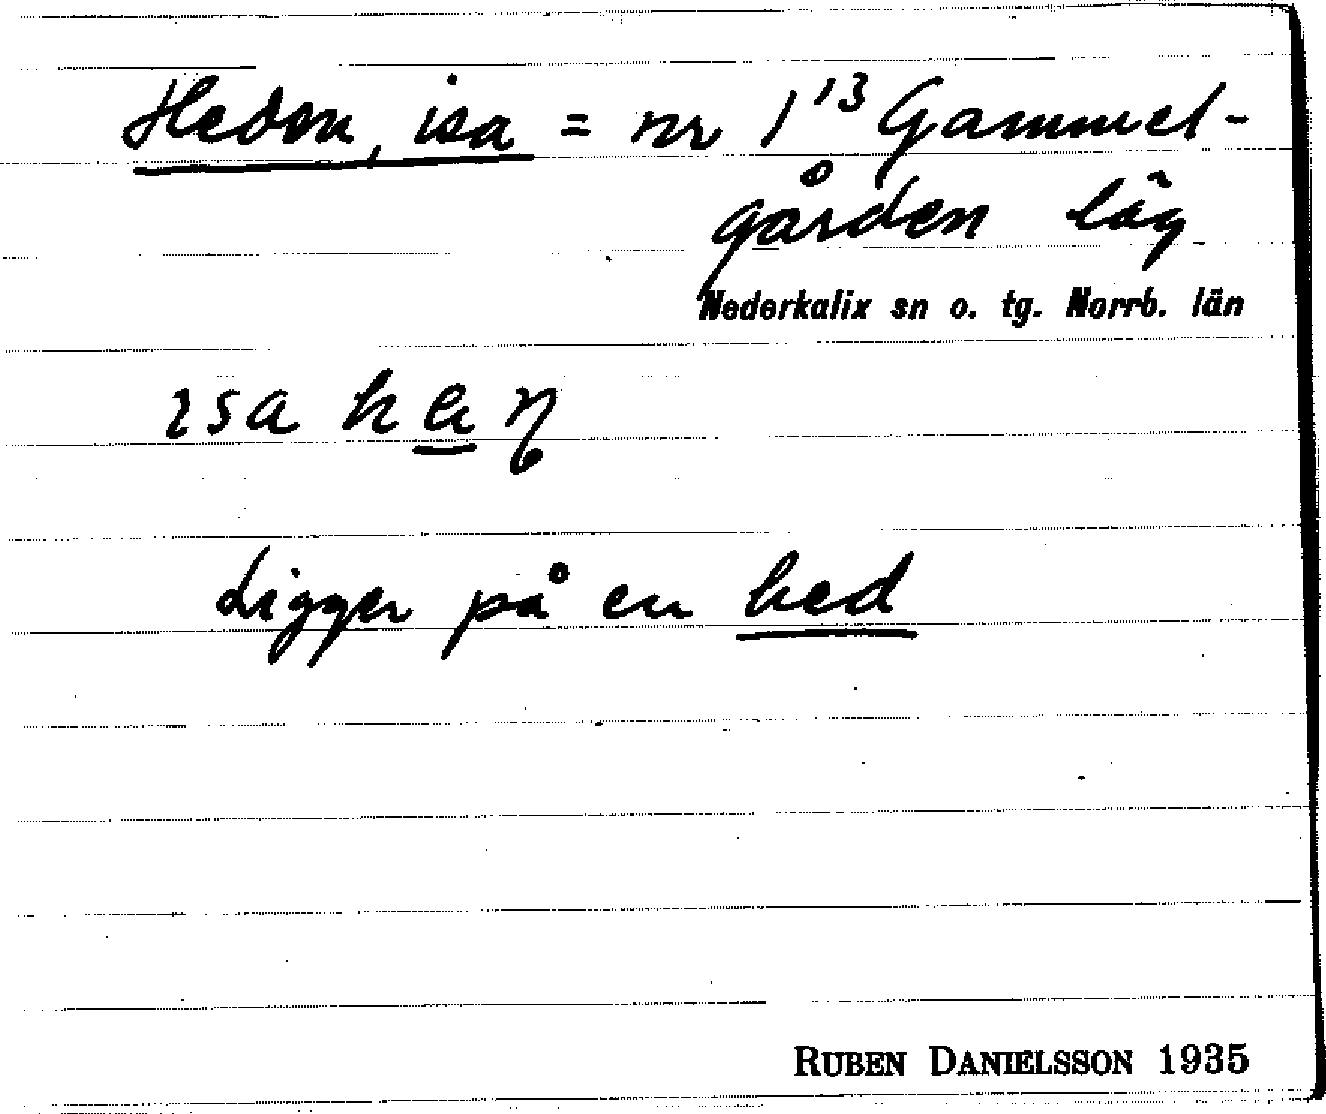 Hedon, isa = nr 1¹³ Gammel-
gården läg
Nederkalix sn o. tg. Norrb. län
ısa
Ligger på en hed
RUBEN DANIELSSON 1935